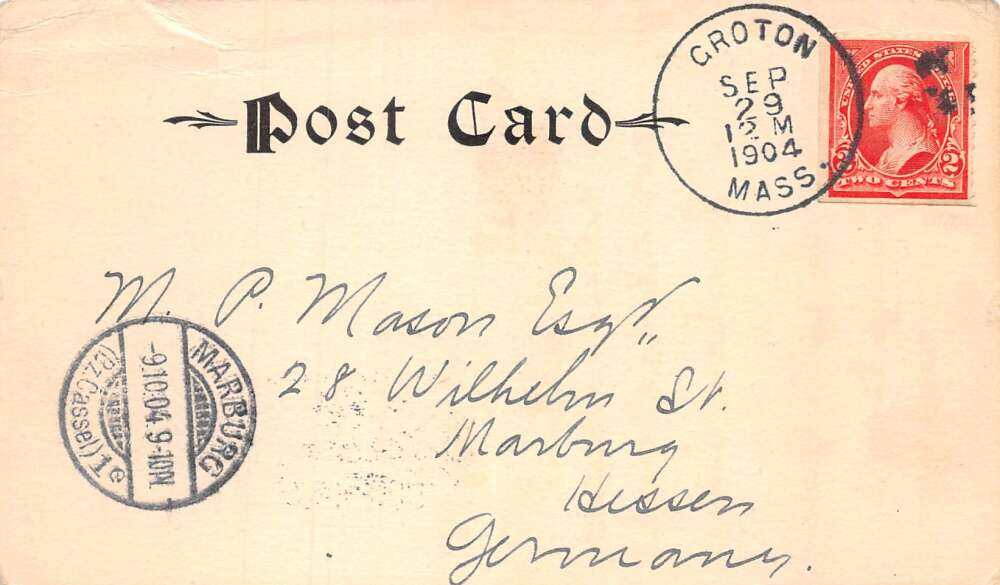 GROTON
SEP
29
12 M
1904
MASS.
UNITED STATES
2 2
TWO CENTS
Post Card
M. P. Mason Esqr,,
28 Wilhelm St.
Marburg
Hessen
Germany.
MARBURG
-9.10.04.9-10N.
(Bz.Cassel)1e